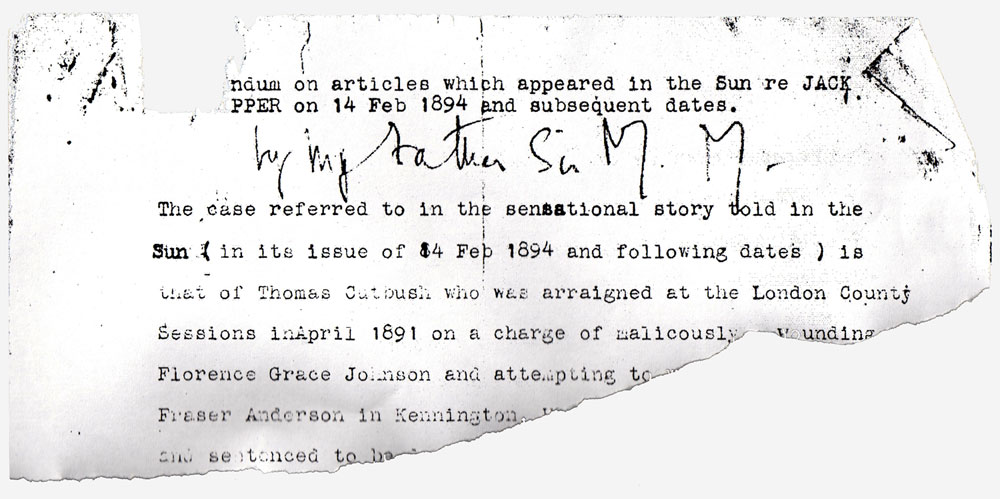 ndum on articles which appeared in the Sun re JACK
PPER on 14 Feb 1894 and subsequent dates.
by my father Sir M. M.
The case referred to in the sensational story told in the
Sun ( in its issue of 14 Feb 1894 and following dates ) is
that of Thomas Cutbush who was arraigned at the London County
Sessions inApril 1891 on a charge of malicously wounding
Florence Grace Johnson and attempting to
Fraser Anderson in Kennington.
and sentenced to